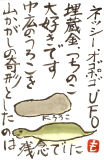 ネッシーオゴポゴUFO
埋蔵金つちのこ
大好きです
中広のうちこを
山かがしの奇形としたのは
残念でした